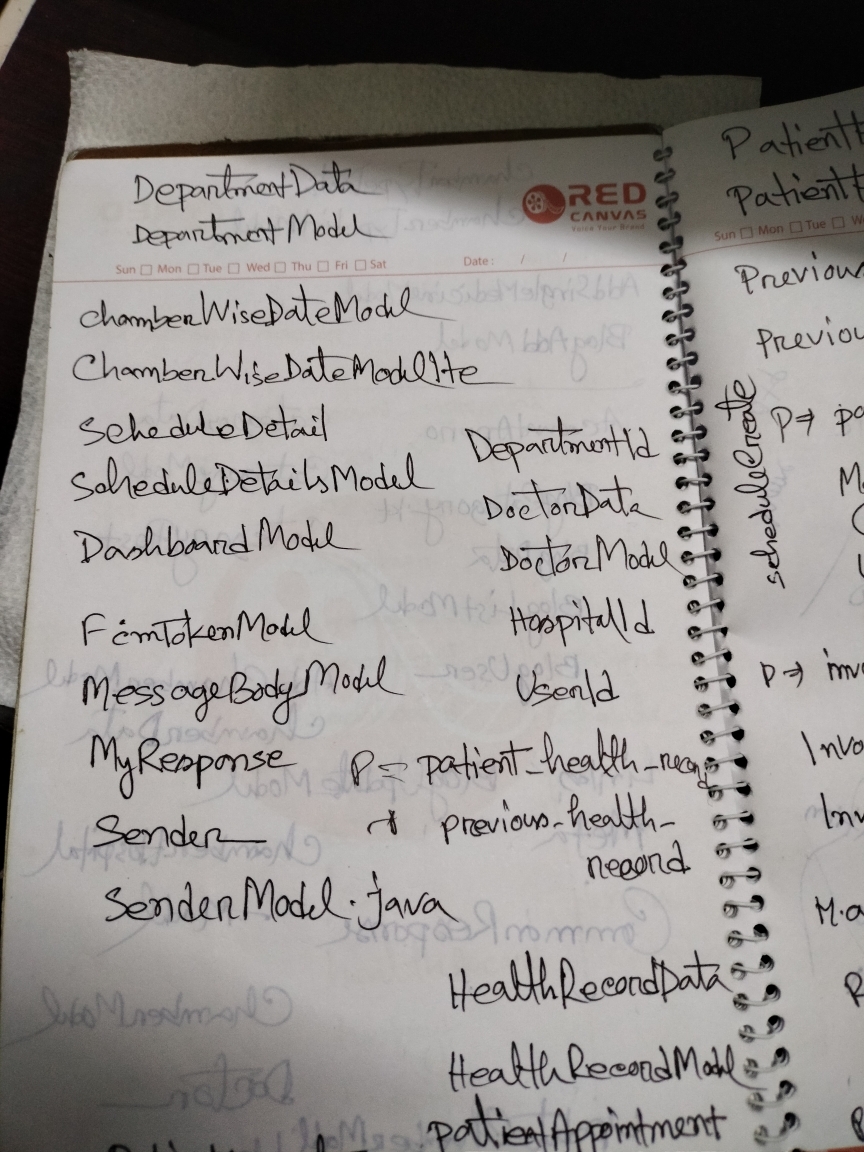 DepartmentData
DepartmentModel
RED
CANVAS
Voice Your Brand
Sun Mon Tue Wed Thu Fri Sat
Date: / /
chamberWiseDateModel
ChamberWiseDateModelIte
ScheduleDetail
ScheduleDetailsModel
DashboardModel
FcmTokenModel
MessageBodyModel
MyResponse
Sender
SenderModel.java
DepartmentId
DoctorData
DoctorModel
HospitalId
UserId
P = patient_health_
previous_health_
record
HealthRecordData
HealthRecordModel
patientAppointment
Patient
Patient
Sun Mon Tue
Previou
Previou
scheduleCreate
P⇒ pa
P⇒ inv
Invo
Inv